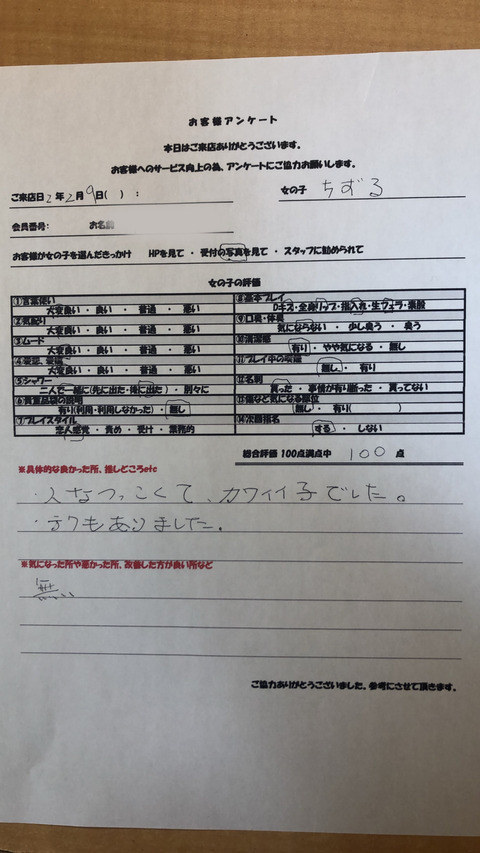 お客様アンケート
本日はご来店ありがとうございます。
お客様へのサービス向上の為、アンケートにご協力お願いします。
ご来店日 2年2月9日( ) :
女の子 ちずる
会員番号: お名前
お客様が女の子を選んだきっかけ HPを見て ・ 受付の写真を見て ・ スタッフに勧められて
女の子の評価
①言葉使い
大変良い ・ 良い ・ 普通 ・ 悪い
②気配り
大変良い ・ 良い ・ 普通 ・ 悪い
③ムード
大変良い ・ 良い ・ 普通 ・ 悪い
大変良い ・ 良い ・ 普通 ・ 悪い
⑤シャワー
二人で一緒に(先に出た・後に出た) ・ 別々に
⑥貴重品袋の説明
有り(利用・利用しなかった) ・ 無し
⑦プレイスタイル
恋人感覚 ・ 責め ・ 受け ・ 業務的
⑧基本プレイ
Dキス・全身リップ・指入れ・生フェラ・素股
⑨口臭・体臭
気にならない ・ 少し臭う ・ 臭う
⑩清潔感
有り ・ やや気になる ・ 無し
⑪プレイ中の
無し ・ 有り
⑫名刺
貰った ・ 事情が有り断った ・ 貰ってない
⑬傷など気になる部位
無し ・ 有り( )
⑭次回指名
する ・ しない
総合評価 100点満点中 100 点
※具体的な良かった所、推しどころetc
・人なつっこくて、カワイイ子でした。
・テクもありました。
※気になった所や悪かった所、改善した方が良い所など
無
ご協力ありがとうございました、参考にさせて頂きます。